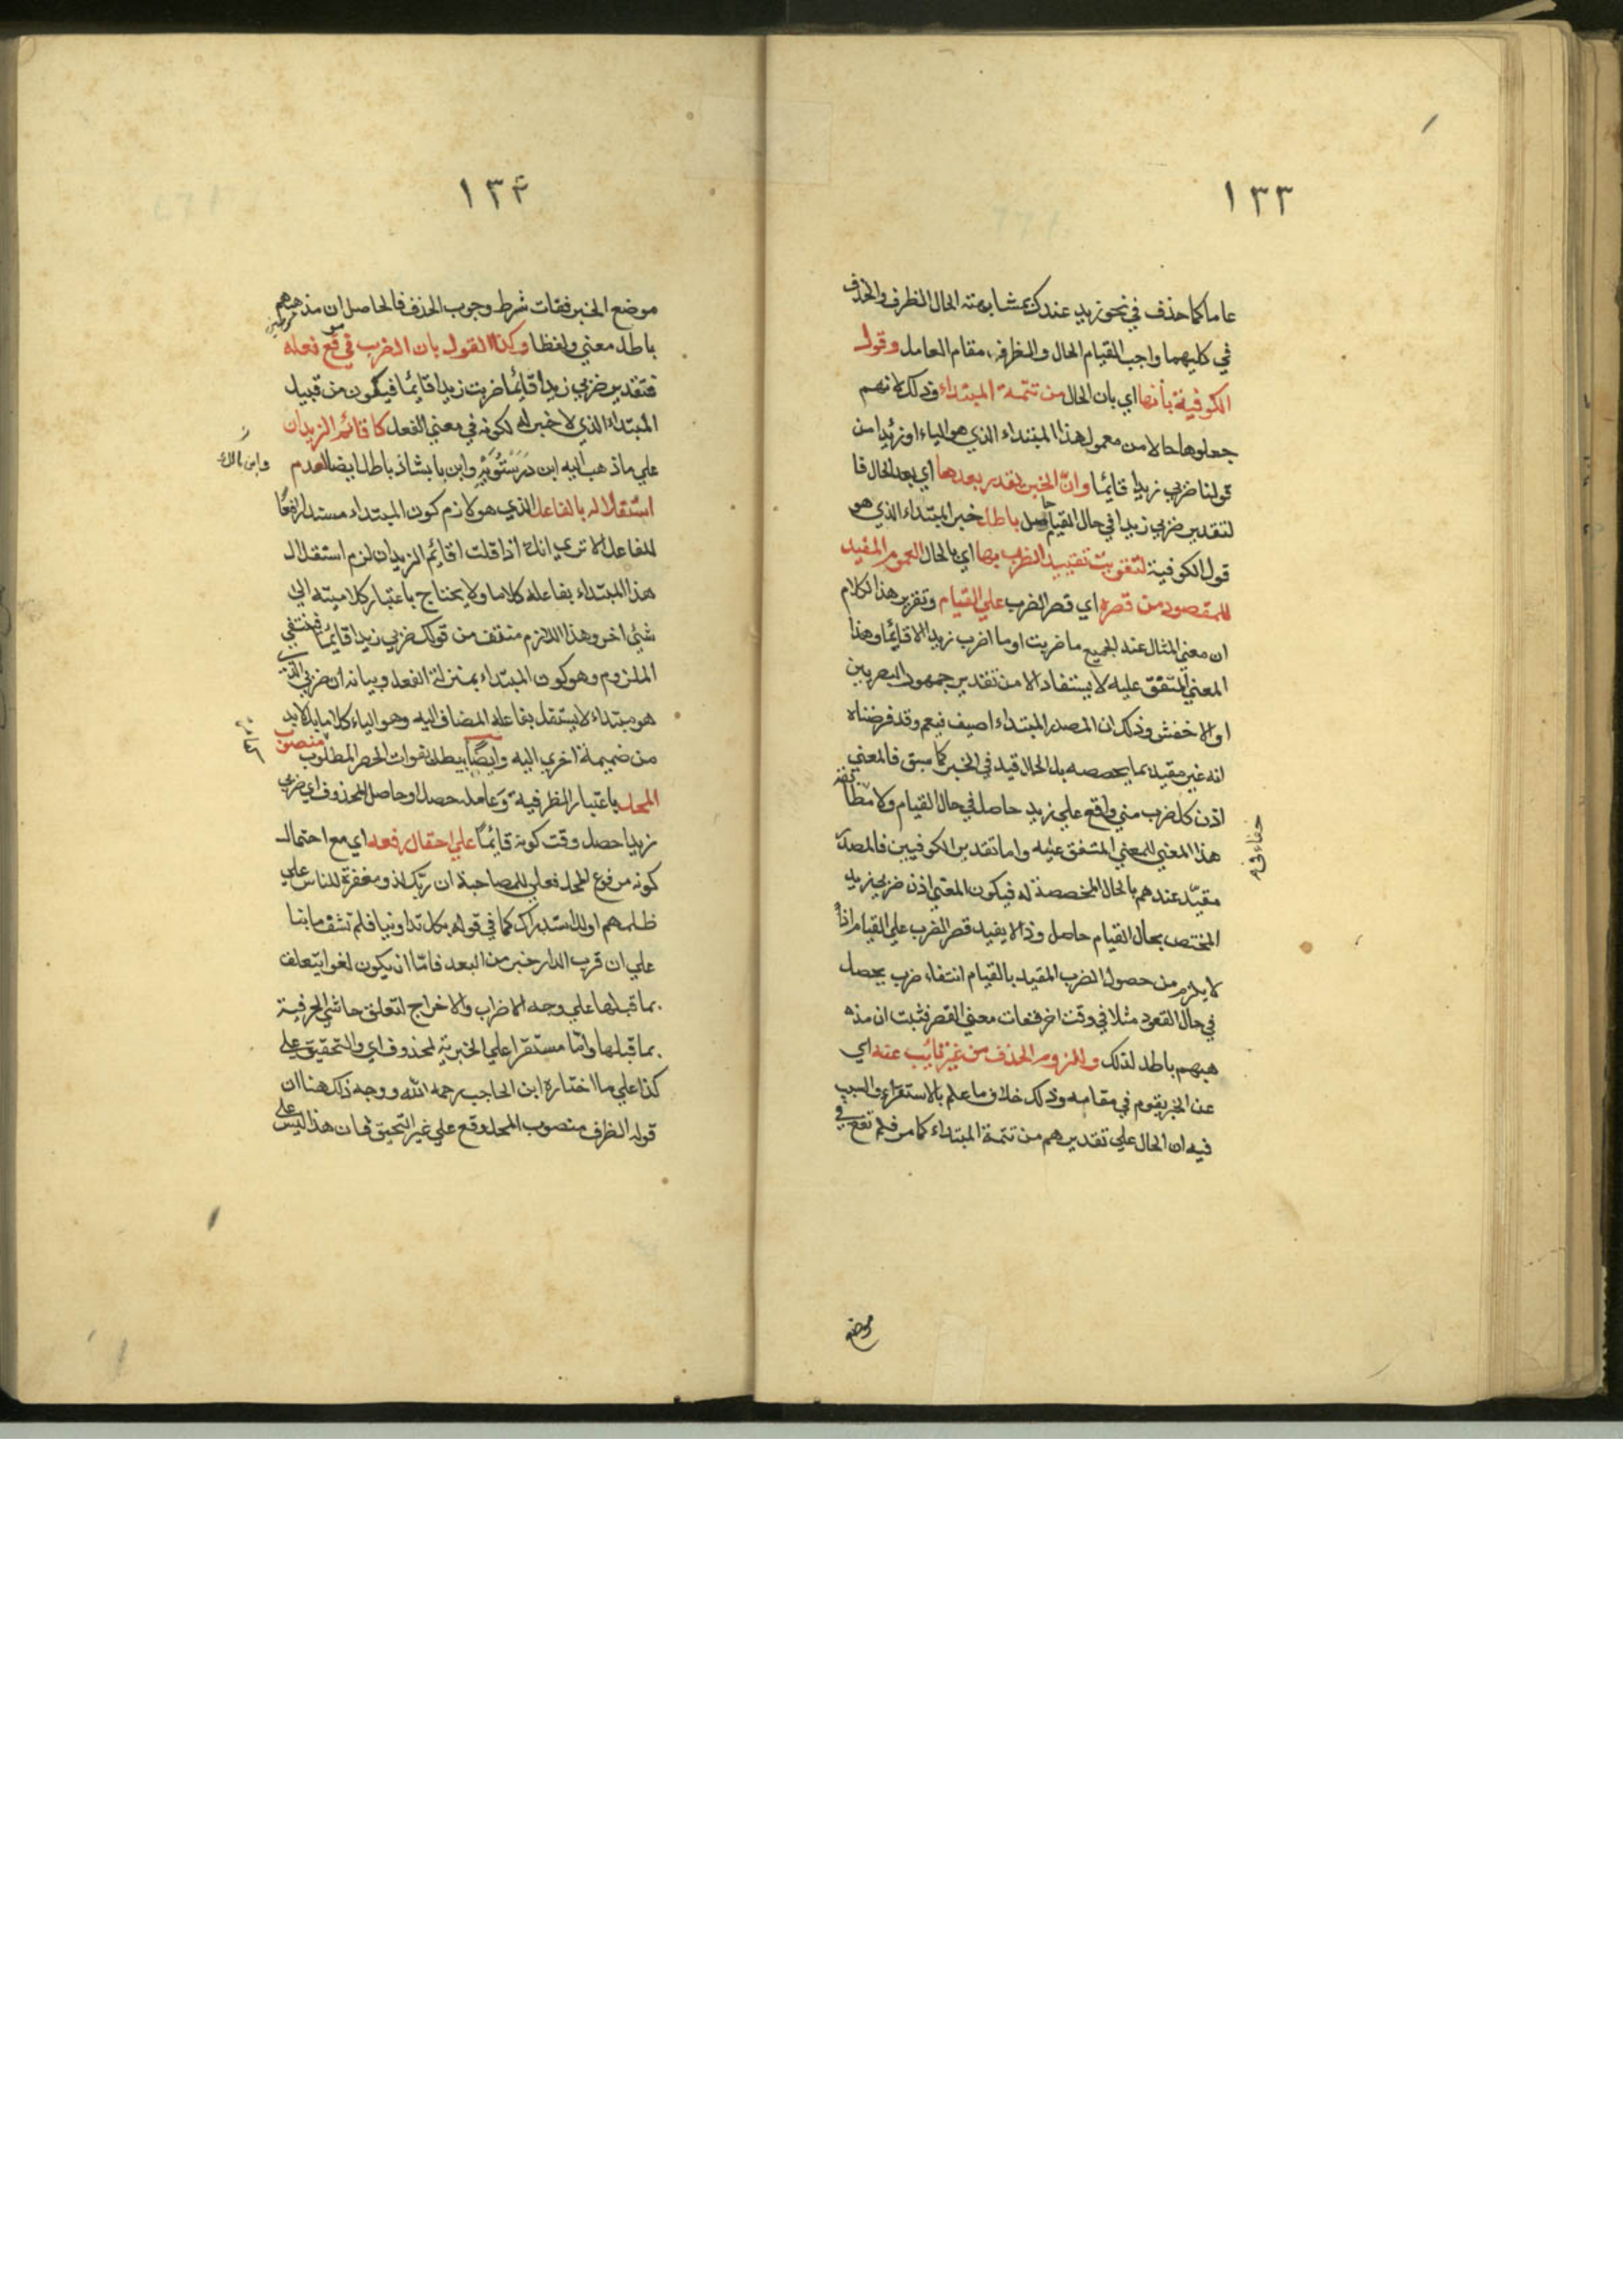 ١٣٣
عاما كما حذف في نحو زيد عندك بمشابهته الحال الظرف والحذف
في كليهما واجب لقيام الحال والظرف مقام العامل وقول
الكوفية بأنها اي بان الحال من تتمة المبتداء وذلك لانهم
جعلوها حالا من معمول هذا المبتداء الذي هو الياء او زيدا من
قولنا ضربي زيدا قايما وان الخبر يقدر بعدها اي بعد الحال فا
لتقدير ضربي زيدا في حال القيام حاصل باطل خبر المبتداء الذي هو
قول الكوفية لتفويت تقييد الضرب بها اي بالحال العموم المفيد
للمقصود من قصره اي قصر الضرب علي القيام وتقرير هذا الكلام
ان معني المثال عند الجميع ما ضربت او ما اضرب زيدا الا قائما وهذا
المعني المتفق عليه لا يستفاد الا من تقدير جمهور البصريين
او الاخفش وذلك ان المصدر المبتداء اضيف فيعم وقد فرضناه
انه غير مقيد بما يخصصه بل الحال قيد في الخبر كما سبق فالمعني
اذن كل ضرب مني واقع علي زيد حاصل في حال القيام ولا مطابقة
هذا المعني للمعني المتفق عليه واما تقدير الكوفيين فالمصدر
مقيد عندهم بالحال المخصصة له فيكون المعني اذن ضربي زيد
المختص بحال القيام حاصل وذا لا يفيد قصر الضرب علي القيام اذ
لا يلزم من حصول الضرب المقيد بالقيام انتفاء ضرب يحصل
في حال القعود مثلا في وقت اخر ففات معني القصر فثبت ان مذ
هبهم باطل لذلك وللزوم الحذف من غير نايب عنه اي
عن الخبر يقوم في مقامه وذلك خلاف ما علم بالاستقراء والسبب
فيه ان الحال علي تقديرهم من تتمة المبتداء كما مر فلم تقع في
موضع
١٣٤
موضع الخبر ففات شرط وجوب الحذف فالحاصل ان مذهبهم
باطل معني ولفظا وكذا القول بان الضرب في موقع فعله
فتقدير ضربي زيدا قائما ضربت زيدا قايما فيكون من قبيل
المبتداء الذي لا خبر له لكونه في معني الفعل كاقائم الزيدان
علي ما ذهب اليه ابن درستويه وابن بابشاذ باطل ايضا لعدم
وابن مالك
استقلاله بالفاعل الذي هو لازم كون المبتداء مسندا رافعا
للفاعل الا تري انك اذا قلت اقايم الزيدان لزم استقلال
هذا المبتداء بفاعله كلاما ولا يحتاج باعتبار كلاميته الي
شئ اخر وهذا اللازم منتف من قولك ضربي زيدا قايما فينتفي
الملزوم وهو كون المبتداء بمنزلة الفعل وبيانه ان ضربي الذي
هو مبتداء لا يستقل بفاعله المضاف اليه وهو الياء كلاما بل لا بد
من ضميمة اخري اليه وايضا يبطله فوات الحصر المطلوب منصوب
المحل باعتبار الظرفية وعامله حصل او حاصل المحذوف اي ضربي
زيدا حصل وقت كونه قايما علي احتمال رفعه اي مع احتمال
كونه مرفوع المحل فعلي للمصاحبة ان ربك لذو مغفرة للناس علي
ظلمهم او للاستدراك كما في قوله بكل تداوينا فلم تشف ما بنا
علي ان قرب الدار خير من البعد فاما ان يكون لغوا يتعلق
بما قبلها علي وجه الاضراب والاخراج لتعلق حاشي الحرفية
بما قبلها واما مستقرا علي الخبرية لمحذوف اي والتحقيق علي
كذا علي ما اختاره ابن الحاجب رحمه الله ووجه ذلك هنا ان
قوله الظرف منصوب المحل وقع علي غير التحقيق فان هذا ليس علي